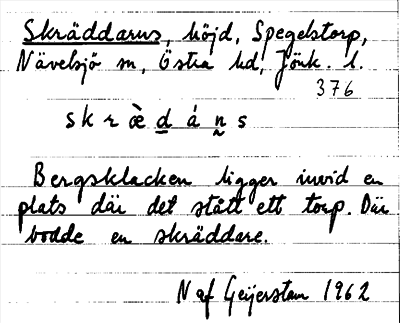 Skräddarns, höjd, Spegelstorp,
Nävelsjö sn, Östra hd, Jönk. l.
376
s k r æ̀ d á n s
Bergsklacken ligger invid en
plats där det stått ett torp. Där
bodde en skräddare.
N af Geijerstam 1962